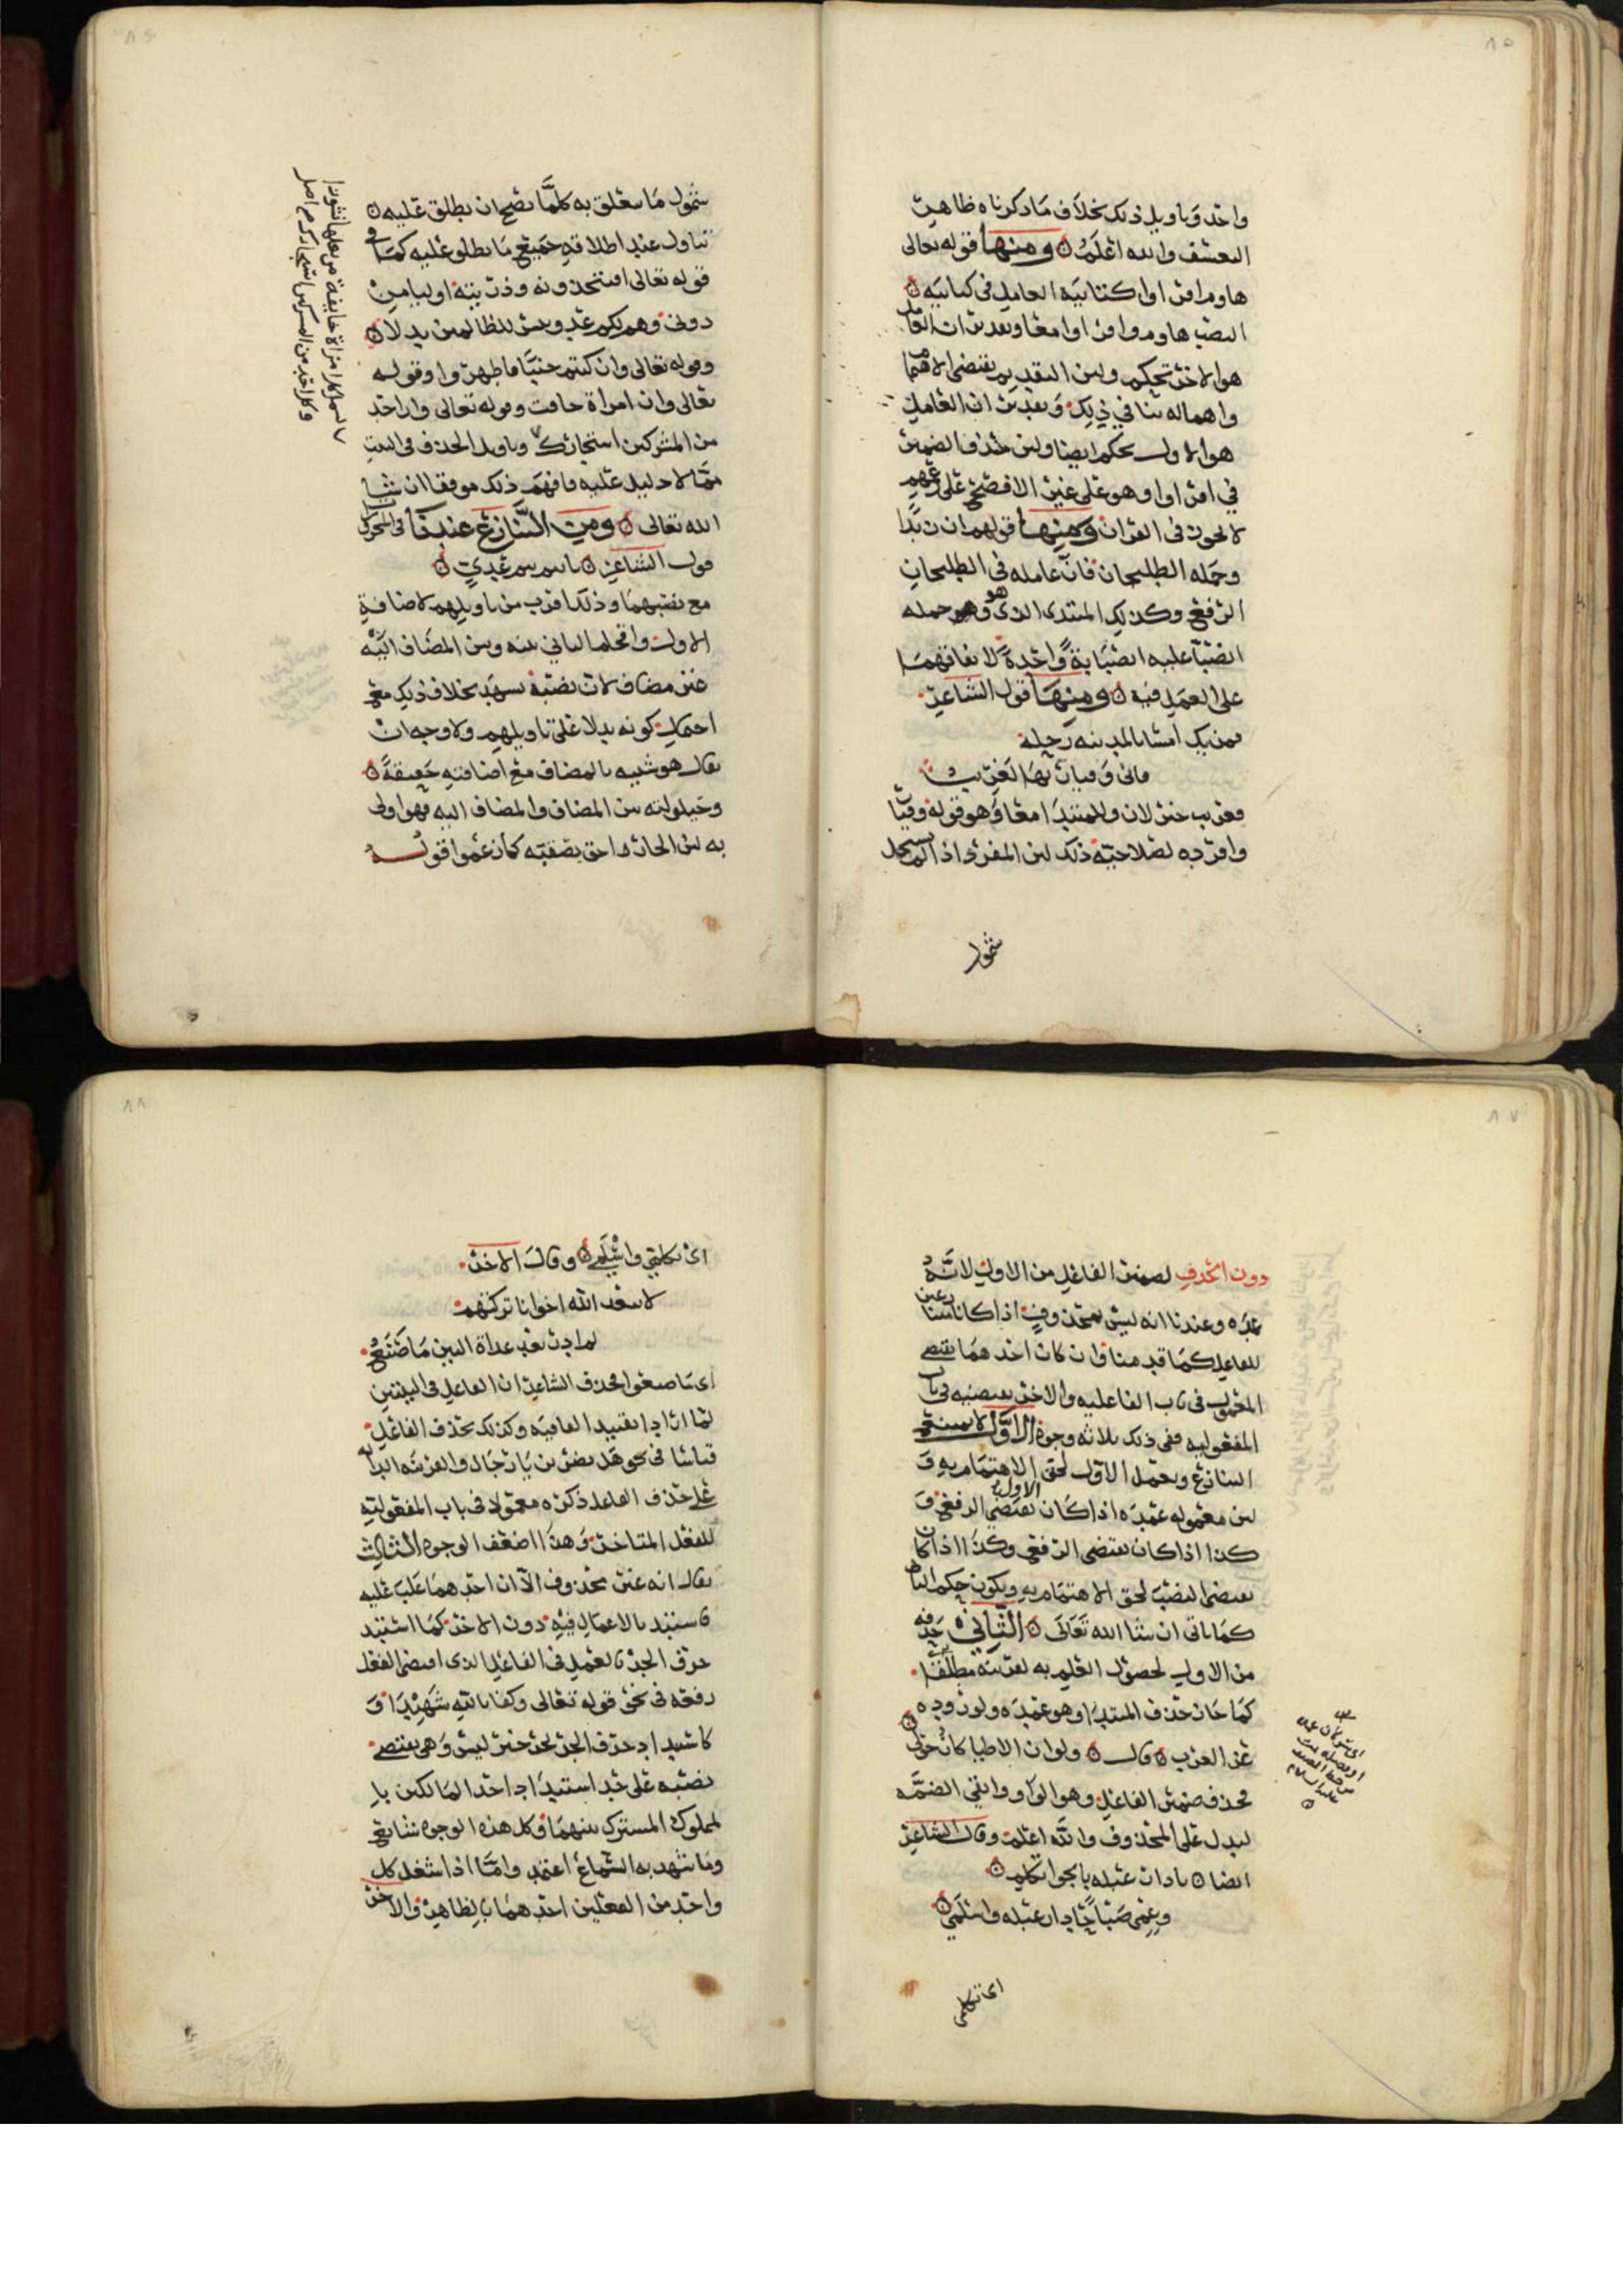 ٨٥
واحد وتاويل ذلك بخلاف ما ذكرناه ظاهر
التعسف والله اعلم ومنها قوله تعالى
هاوم اقراوا كتابيه العامل في كتابيه
النصب هاوم واقراوا معا وتقدير ان العامل
هو الاخر تحكم ولان التقديم يقتضي الاهتمام
واهماله ينافي ذلك وتقدير ان العامل
هو الاول تحكم ايضا ولان حذف الضمير
في اقراوا وهو على غير الافصح على زعمهم
لا يجوز في القران ومنها قولهم ان زيدا
وحمله الطليحان فان عامله في الطليحان
الرفع وكذلك المبتدى الذي هو وحمله
انصبا عليه انصبابة واحدة لاتفاقهما
على العمل فيه ومنها قول الشاعر
فمن يك امسا بالمدينه رحله
فاني وقيار بها لغريب
فغريب خبر لان وللمبتدا معا وهو قوله وقيار
وافرده لصلاحيته ذلك لان المفرد اذا
شمول
٨٦
شمول ما تعلق به كلما يصح ان يطلق عليه
تناول عند اطلاقه جميع ما يطلق عليه كما في
قوله تعالى افتتخذونه وذريته اوليا من
دوني وهم لكم عدو بيس للظالمين بدلا
وقوله تعالى وان كنتم جنبا فاطهروا وقوله
تعالى وان امراة خافت وقوله تعالى وان احد
من المشركين استجارك وتاويل الحذف في البيت
مما لا دليل عليه فافهم ذلك موفقا ان شا
الله تعالى ومن التنازع عندنا في المحرك
قول الشاعر يا تيم تيم عدي
مع نصبهما وذلك اقرب من تاويلهم لاضافة
الاول واقحام الثاني بينه وبين المضاف اليه
غير مضاف لان نصبه يسهد بخلاف ذلك مع
احتمال كونه بدلا على تاويلهم ولا وجه ان
يقال هو شبيه بالمضاف مع اضافته حقيقة
وحيلولته بين المضاف والمضاف اليه فهو اولى
به لان الجار احق بصقبه كما زعموا قوله
٨٧
دون الحذف لضمير الفاعل من الاول لانه
عمده وعندنا انه ليس بمحذوف اذا كانا
للفاعل كما قدمنا وان كان احدهما يقتضي
المعمول في باب الفاعليه والاخر يقتضيه في باب
المفعوليه ففي ذلك ثلاثه وجوه الاول لا يمتنع
التنازع ويعمل الاول لحق الاهتمام به و
لان معموله عمده اذا كان الاول يقتضي الرفع و
كذا اذا كان يقتضي الرفع وكذا اذا كان
يقتضي النصب لحق الاهتمام به ويكون حكم
كما ياتي ان شا الله تعالى الثاني حذفه
من الاول لحصول العلم به لقرينه مطلقا
كما جاز حذف المبتدا وهو عمده ولوروده
عن العرب قال ولو ان الاطبا كان حولي
فحذف ضمير الفاعل وهو الواو وابقى الضمه
ليدل على المحذوف والله اعلم وقال الشاعر
ايضا يا دار عبله بالجواتكلم
وعمي صباحا دار عبله واسلمي
اي تكلمي
٨٨
اي تكلمي واسلمي وقال الاخر
لا يبعد الله اخوانا تركتهم
لم ادر بعد غداة البين ما صنع
اي ما صنعوا فحذف الشاعر ان الفاعل في البيتين
لما ارادا تقييد القافيه وكذلك يحذف الفاعل
قياسا في نحو هل يضربن يا رجال والقرينه الداله
على حذف الفاعل ذكره معمولا في باب المفعوليه
للفعل المتاخر وهذا اضعف الوجوه الثالث
يقال انه غير محذوف الا ان احدهما غلب عليه
فاستبد بالاعمال فيه دون الاخر كما استبد
حرف الجر بالعمل في الفاعل الذي اقتضى الفعل
رفعه في نحو قوله تعالى وكفا بالله شهيدا و
كاستبداد حرف الجر لجر خبر ليس وهي يقتضي
نصبه على حد استبداد احد المالكين با
لمملوك المشترك بينهما وكل هذه الوجوه شايع
وما شهد به السماع اعتمد واما اذا اشتغل كل
واحد من الفعلين احدهما بالظاهر والاخر